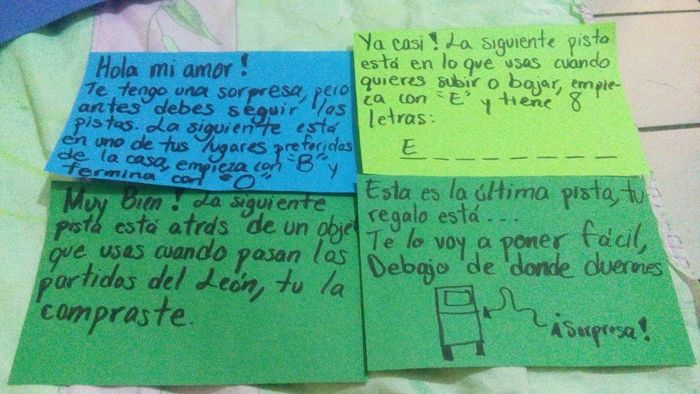 Hola mi amor!
Te tengo una sorpresa, pero
antes debes seguir las
pistas. La siguiente está
en uno de tus lugares preferidas
de la casa, empieza con "B" y
termina con "O"
Muy Bien! La siguiente
pista está atrás de un obje
que usas cuando pasan los
partidos del León, tu la
compraste.
Ya casi! La siguiente pista
está en lo que usas cuando
quieres subir o bajar, empie-
za con "E" y tiene 8
letras:
E _ _ _ _ _ _ _
Esta es la última pista, tu
regalo está...
Te lo voy a poner fácil,
Debajo de donde duermes
¡Sorpresa!